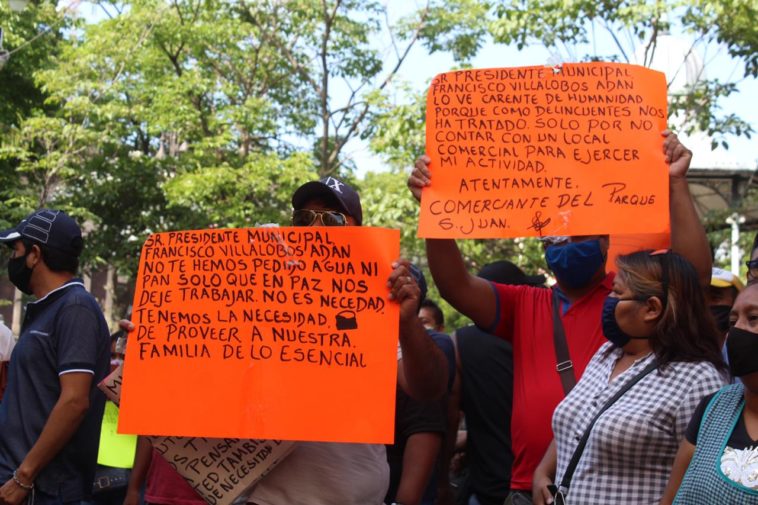 SR. PRESIDENTE MUNICIPAL
FRANCISCO VILLALOBOS ADAN
NO TE HEMOS PEDIDO AGUA NI
PAN SOLO QUE EN PAZ NOS
DEJE TRABAJAR. NO ES NECEDAD.
TENEMOS LA NECESIDAD.
DE PROVEER A NUESTRA.
FAMILIA DE LO ESENCIAL
SR. PRESIDENTE MUNICIPAL
FRANCISCO VILLALOBOS ADAN
LO VE CARENTE DE HUMANIDAD
PORQUE COMO DELINCUENTES NOS
HA TRATADO. SOLO POR NO
CONTAR CON UN LOCAL
COMERCIAL PARA EJERCER
MI ACTIVIDAD.
ATENTAMENTE.
COMERCIANTE DEL PARQUE
S. JUAN.